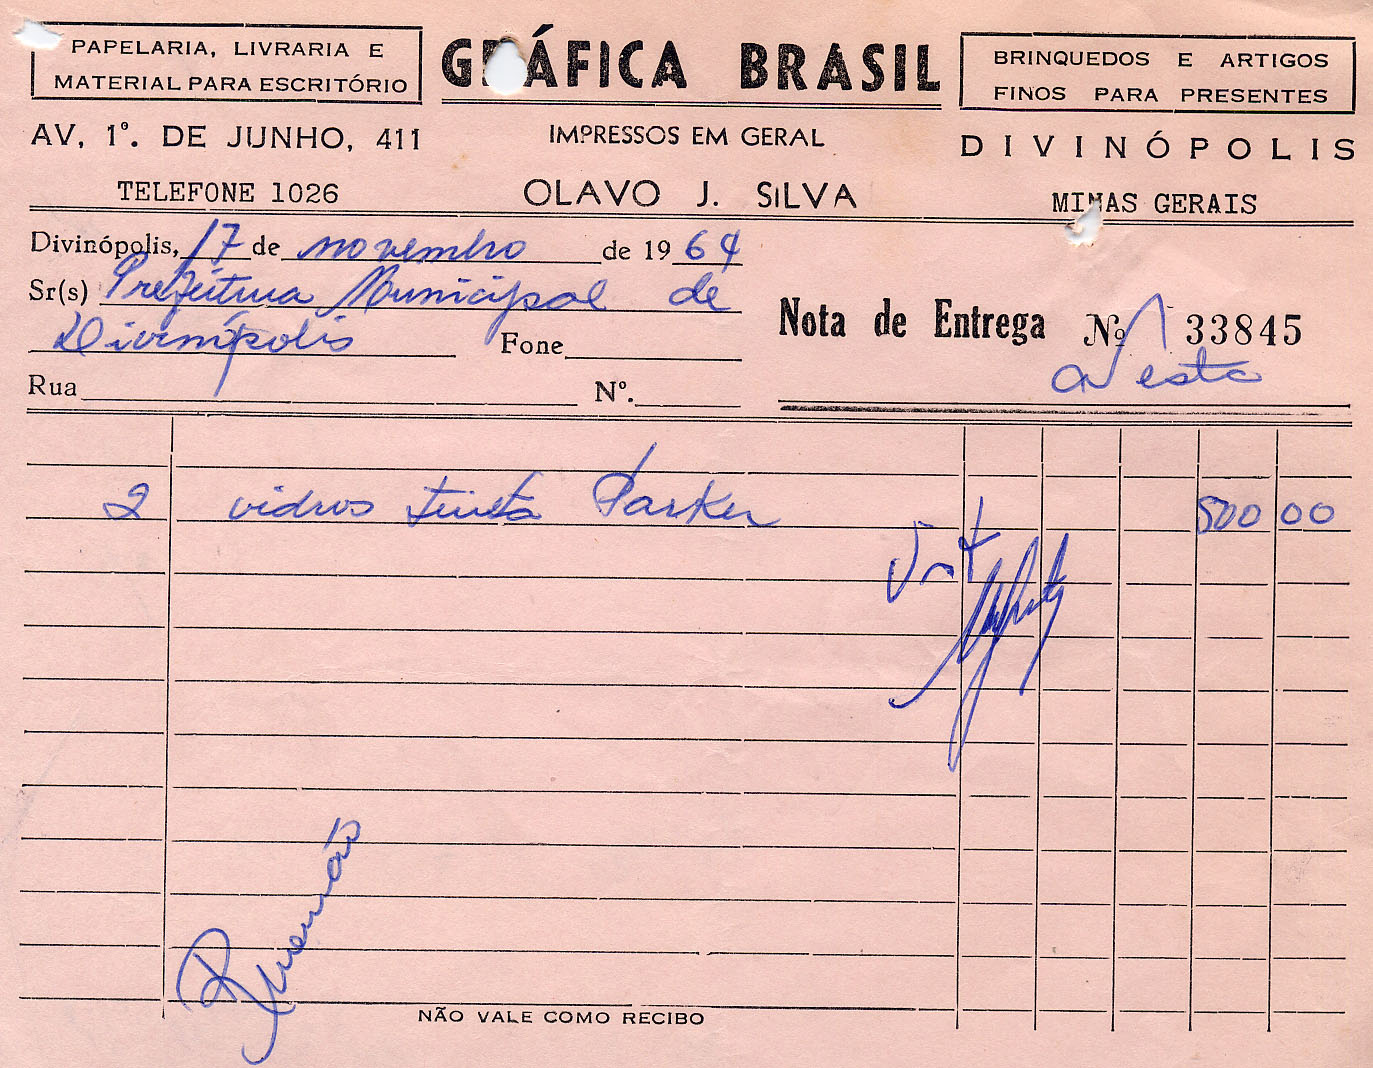 PAPELARIA, LIVRARIA E
MATERIAL PARA ESCRITÓRIO
GRÁFICA BRASIL
BRINQUEDOS E ARTIGOS
FINOS PARA PRESENTES
AV, 1º. DE JUNHO, 411
IMPRESSOS EM GERAL
DIVINÓPOLIS
TELEFONE 1026
OLAVO J. SILVA
MINAS GERAIS
Divinópolis, 17 de novembro de 1964
Sr(s) Prefeitura Municipal de
Divinópolis
Fone
Nota de Entrega Nº 33845
Rua
Nº.
2 vidros tinta Parker 500 00
NÃO VALE COMO RECIBO